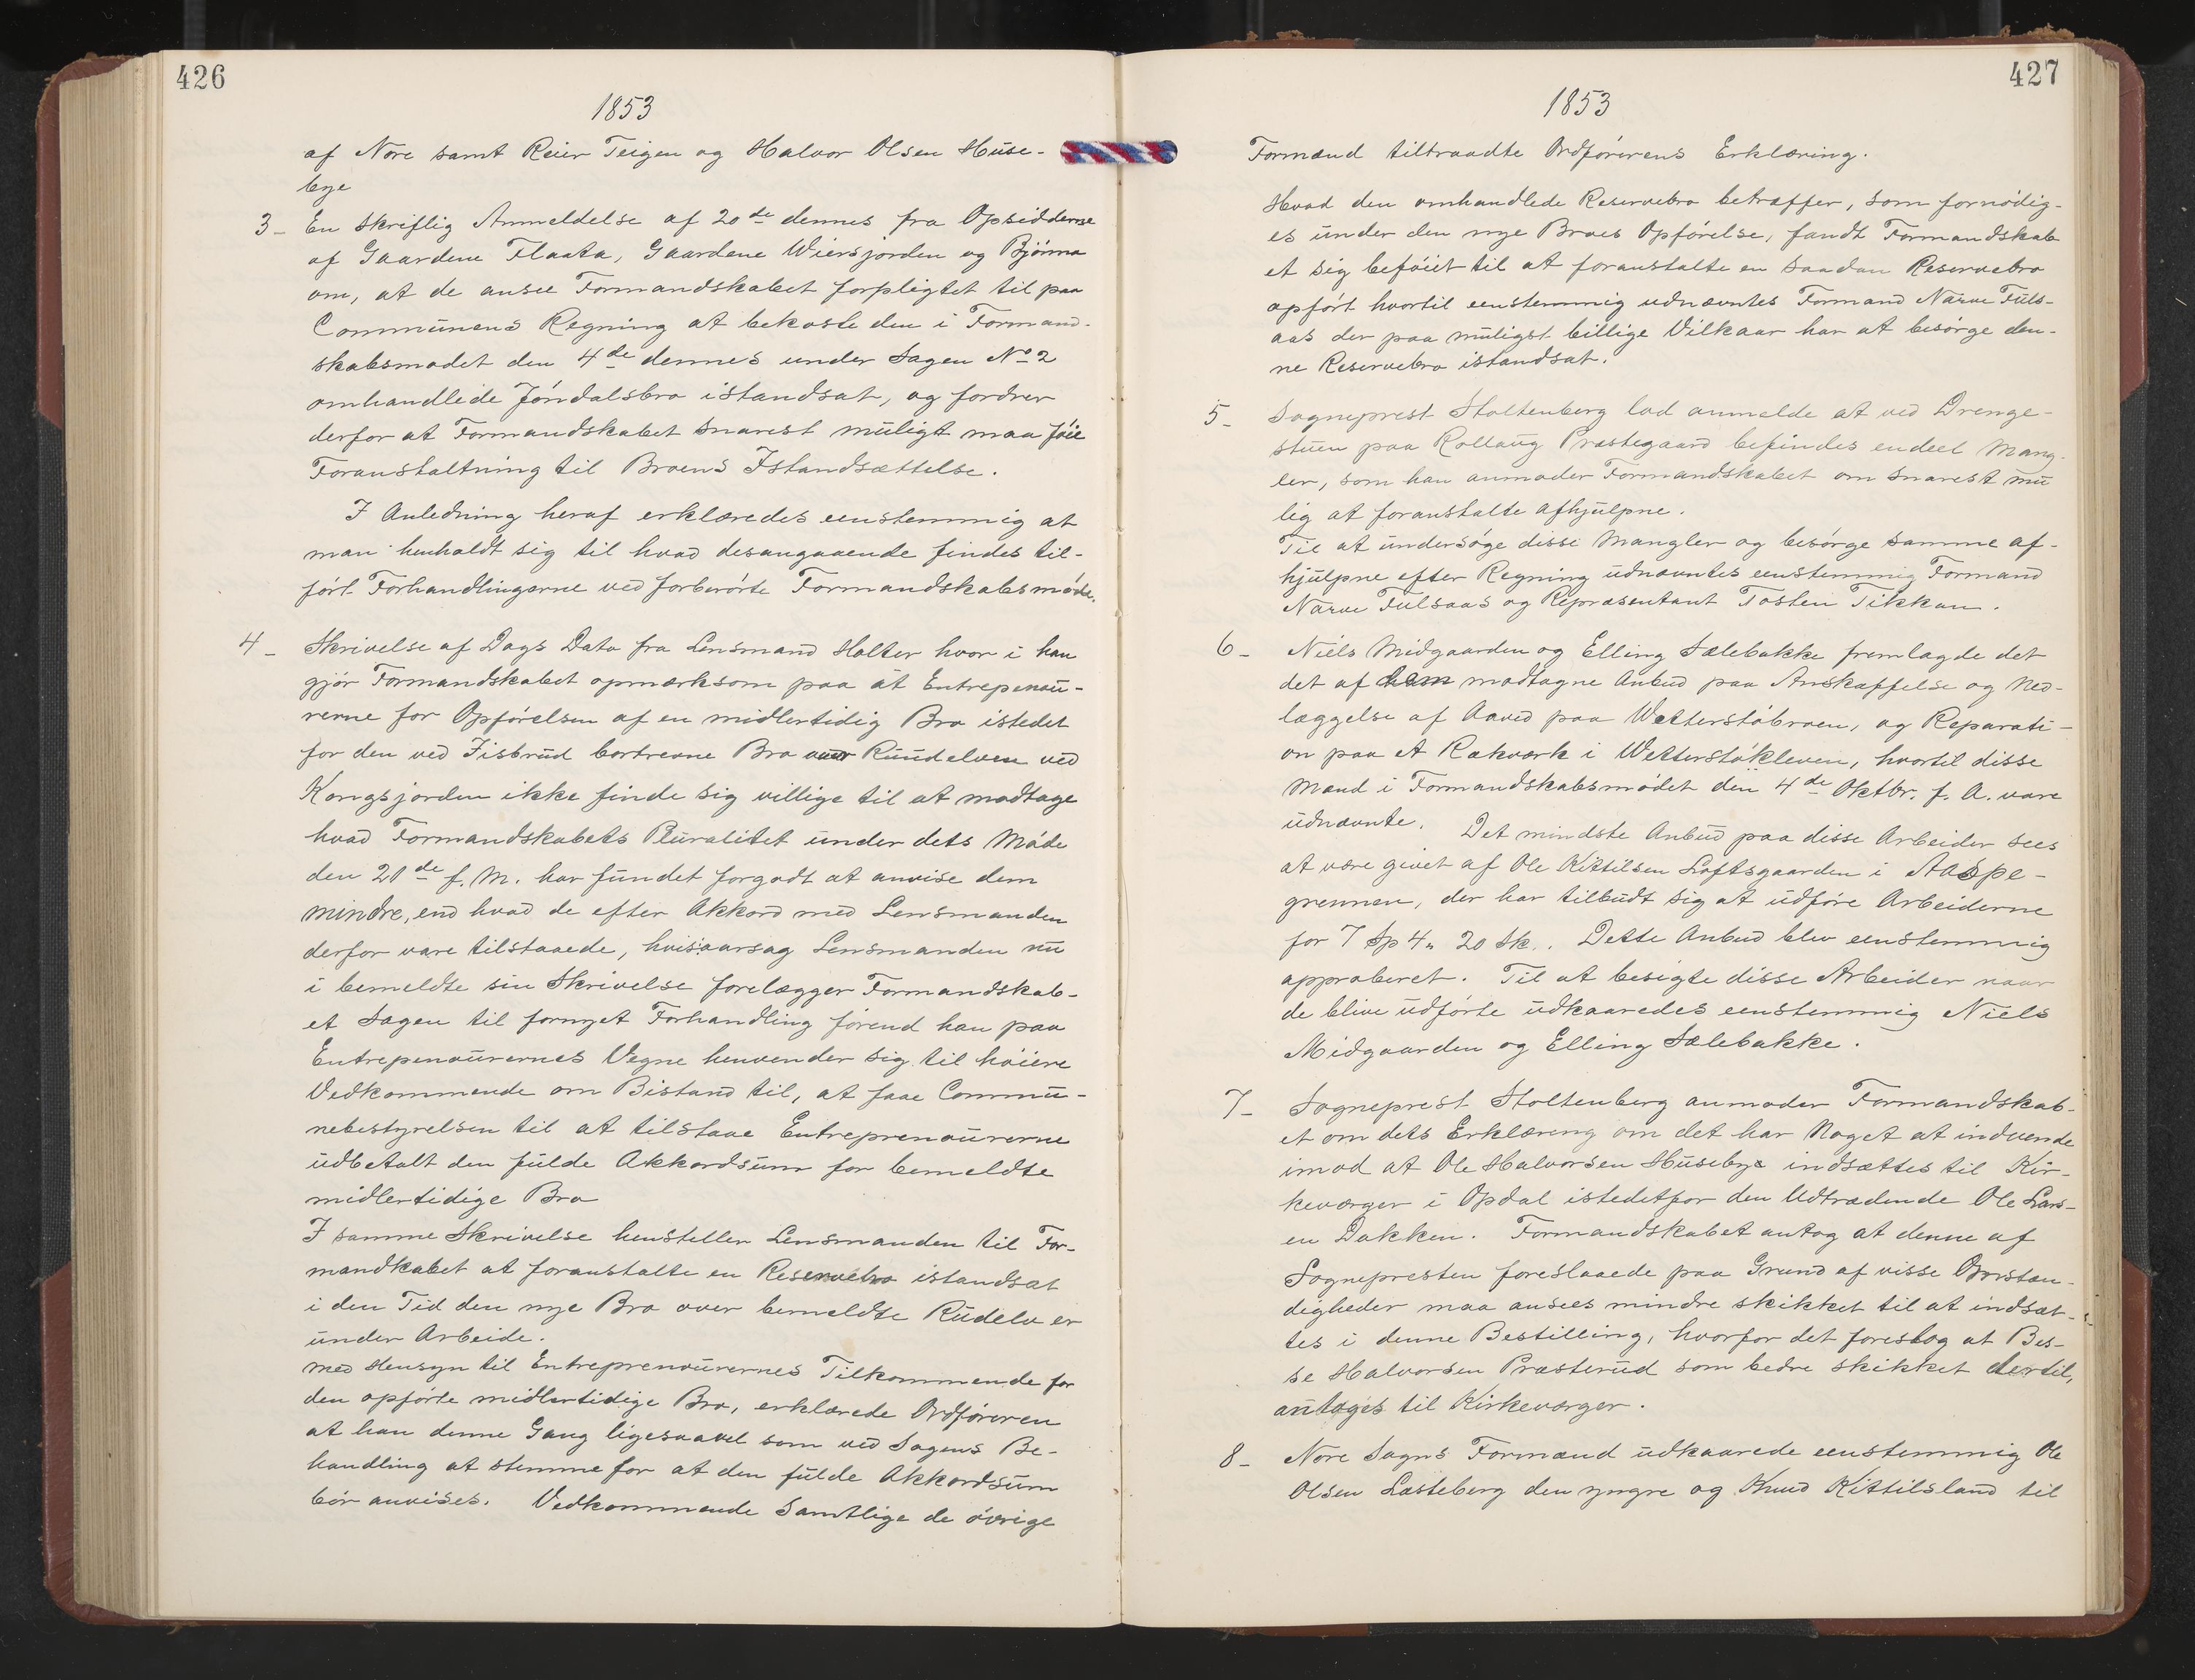 426
1853
af Nore samt Reier Teigen og Halvor Olsen Huse-
bye
3- En skriflig Anmeldelse af 20de dennes fra Opsidderne
af Gaardene Flaata, Gaardene Wiersjorden og Bjørnna
om, at de ansee Formandskabet forpligtet til paa
Communens Regning at bekoste den i Formand-
skabsmødet den 4de dennes under Sagen No 2
omhandlede Jøndalsbro istandsat, og fordrer
derfor at Formandskabet snarest muligt maa føie
Foranstaltning til Broens Istandsættelse.
I Anledning heraf erklæredes eenstemmig at
man henholdt sig til hvad desangaaende findes til-
ført Forhandlingerne ved forberørte Formandskabsmøde.
4- Skrivelse af Dags Dato fra Lensmand Holter hvor i han
gjør Formandskabet opmærksom paa at Entrepenøu-
rerne for Opførelsen af en midlertidig Bro istedet
for den ved Iisbrud bortrevne Bro over Ruudelven ved
Kongsjorden ikke finde sig villige til at modtage
hvad Formandskabets Pluralitet under dets Møde
den 20de f. M. har fundet forgodt at anvise dem
mindre, end hvad de efter Akkord med Lensmanden
derfor vare tilstaaede, hvisaarsag Lensmanden nu
i bemeldte sin Skrivelse forelægger Formandskab-
et Sagen til fornyet Forhandling førend han paa
Entrepenøurernes Vegne henvender sig til høiere
Vedkommende om Bistand til, at faae Commu-
nebestyrelsen til at tilstaae Entreprenøurerne
udbetalt den fulde Akkordsum for bemeldte
midlertidige Bro
I samme Skrivelse henstiller Lensmanden til For-
mandkabet at foranstalte en Reservebro istandsat
i den Tid den nye Bro over bemeldte Rudelv er
under Arbeide.
Med Hensyn til Entreprenøurernes Tilkommende for
den opførte midlertidige Bro, erklærede Ordføreren
at han denne Gang ligesaavel som ved Sagens Be-
handling at stemme for at den fulde Akkordsum
bør anvises. Vedkommende Samtlige de øvrige
427
1853
Formænd tiltraadte Ordførerens Erklæring.
Hvad den omhandlede Reservebro betræffer, som fornødig-
es under den nye Broes Opførelse, fandt Formandskab
et sig beføiet til at foranstalte en saadan Reservebro
opført hvortil eenstemmig udnævntes Formand Narve Fuls-
aas der paa muligst billige Vilkaar har at besørge den-
ne Reservebro istandsat.
5- Sogneprest Stoltenberg lod anmelde at ved Drenge-
stuen paa Rollaug Præstegaard befindes endeel Mang-
ler, som han anmoder Formandskabet om snarest mu
lig at foranstalte afhjulpne.
Til at undersøge disse Mangler og besørge samme af-
hjulpne efter Regning udnævntes eenstemmig Formand
Narve Fulsaas og Repræsentant Tosten Tikkun.
6- Niels Midgaarden og Elling Sælebakke fremlagde det
det af ham modtagne Anbud paa Anskaffelse og Ned-
læggelse af Aaved paa Wetterstøbroen, og Reparati-
on paa et Rækværk i Wetterstøkleven, hvortil disse
Mænd i Formandskabsmødet den 4de Oktbr. f. A. vare
udnævnte. Det mindste Anbud paa disse Arbeider sees
at være givet af Ole Kittilsen Loftsgaarden i Aaspe-
grennen, der har tilbudt sig at udføre Arbeiderne
for 7 Sp 4„ 20 sk.. Dette Anbud blev eenstemmig
approberet. Til at besigte disse Arbeider naar
de blive udførte udkaaredes eenstemmig Niels
Midgaarden og Elling Sælebakke.
7- Sogneprest Stoltenberg anmoder Formandskab-
et om dets Erklæring om det har Noget at indvende
imod at Ole Halvorsen Husebye indsættes til Kir-
keværger i Opdal istedetfor den Udtrædende Ole Lars-
en Dokken. Formandskabet antog at denne af
Sognepresten foreslaaede paa Grund af visse Omstæn-
digheder maa ansees mindre skikket til at indsæt-
tes i denne Bestilling, hvorfor det foreslog at Bes-
se Halvorsen Præsterud som bedre skikket dertil,
antages til Kirkeværger.
8- Nore Sogns Formænd udkaarede eenstemmig Ole
Olsen Læsteberg den yngre og Knud Kittilsland til